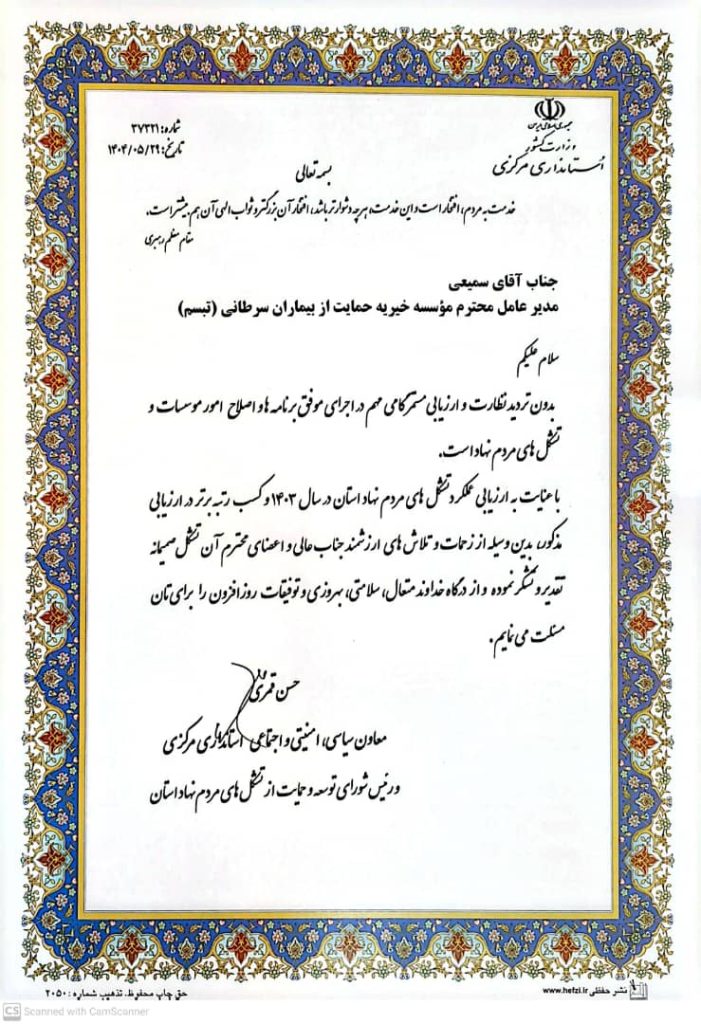 جمهوری اسلامی ایران
وزارت کشور
استانداری مرکزی
شماره: ۳۷۳۲۱
تاریخ: ۱۴۰۴/۰۵/۲۹
بسمه تعالی
خدمت به مردم، افتخار است و این خدمت، هر چه دشوارتر باشد، افتخار آن بزرگتر و ثواب الهی آن هم بیشتر است.
مقام معظم رهبری
جناب آقای سمیعی
مدیر عامل محترم مؤسسه خیریه حمایت از بیماران سرطانی (تبسم)
سلام علیکم
بدون تردید نظارت و ارزیابی مستمر گامی مهم در اجرای موفق برنامه ها و اصلاح امور موسسات و
تشکل های مردم نهاد است.
با عنایت به ارزیابی عملکرد تشکل های مردم نهاد استان در سال ۱۴۰۳ و کسب رتبه برتر در ارزیابی
مذکور، بدین وسیله از زحمات و تلاش های ارزشمند جناب عالی و اعضای محترم آن تشکل صمیمانه
تقدیر و تشکر نموده و از درگاه خداوند متعال، سلامتی، بهروزی و توفیقات روزافزون را برای تان
مسئلت می نمایم.
حسن قمری
معاون سیاسی، امنیتی و اجتماعی استانداری مرکزی
و رئیس شورای توسعه و حمایت از تشکل های مردم نهاد استان
نشر حفظی www.hefzi.ir
حق چاپ محفوظ. تذهیب شماره: ۲۰۵۰
CS Scanned with CamScanner